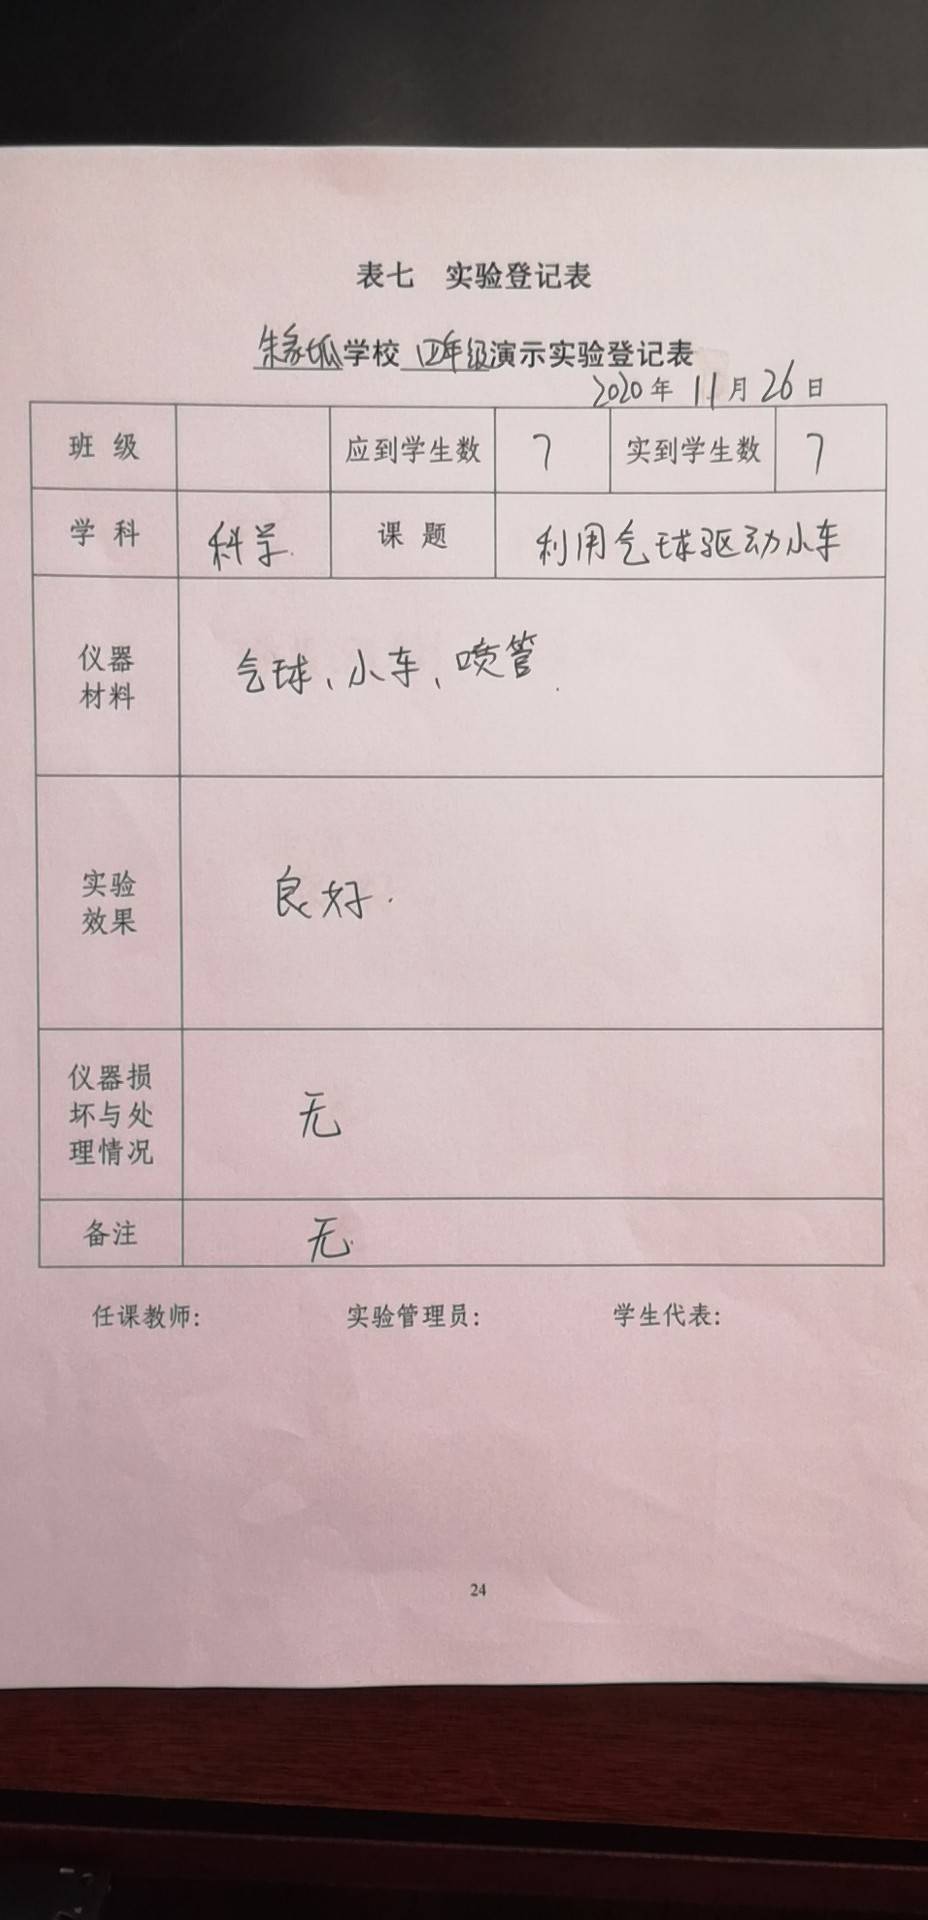 表七 实验登记表
朱家坬学校 四年级演示实验登记表
2020年 11月26日
班级 应到学生数 7 实到学生数 7
学科 科学. 课题 利用气球驱动小车
仪器
材料
气球、小车、喷管.
实验
效果
良好.
仪器损
坏与处
理情况
无
备注 无.
任课教师: 实验管理员: 学生代表:
24